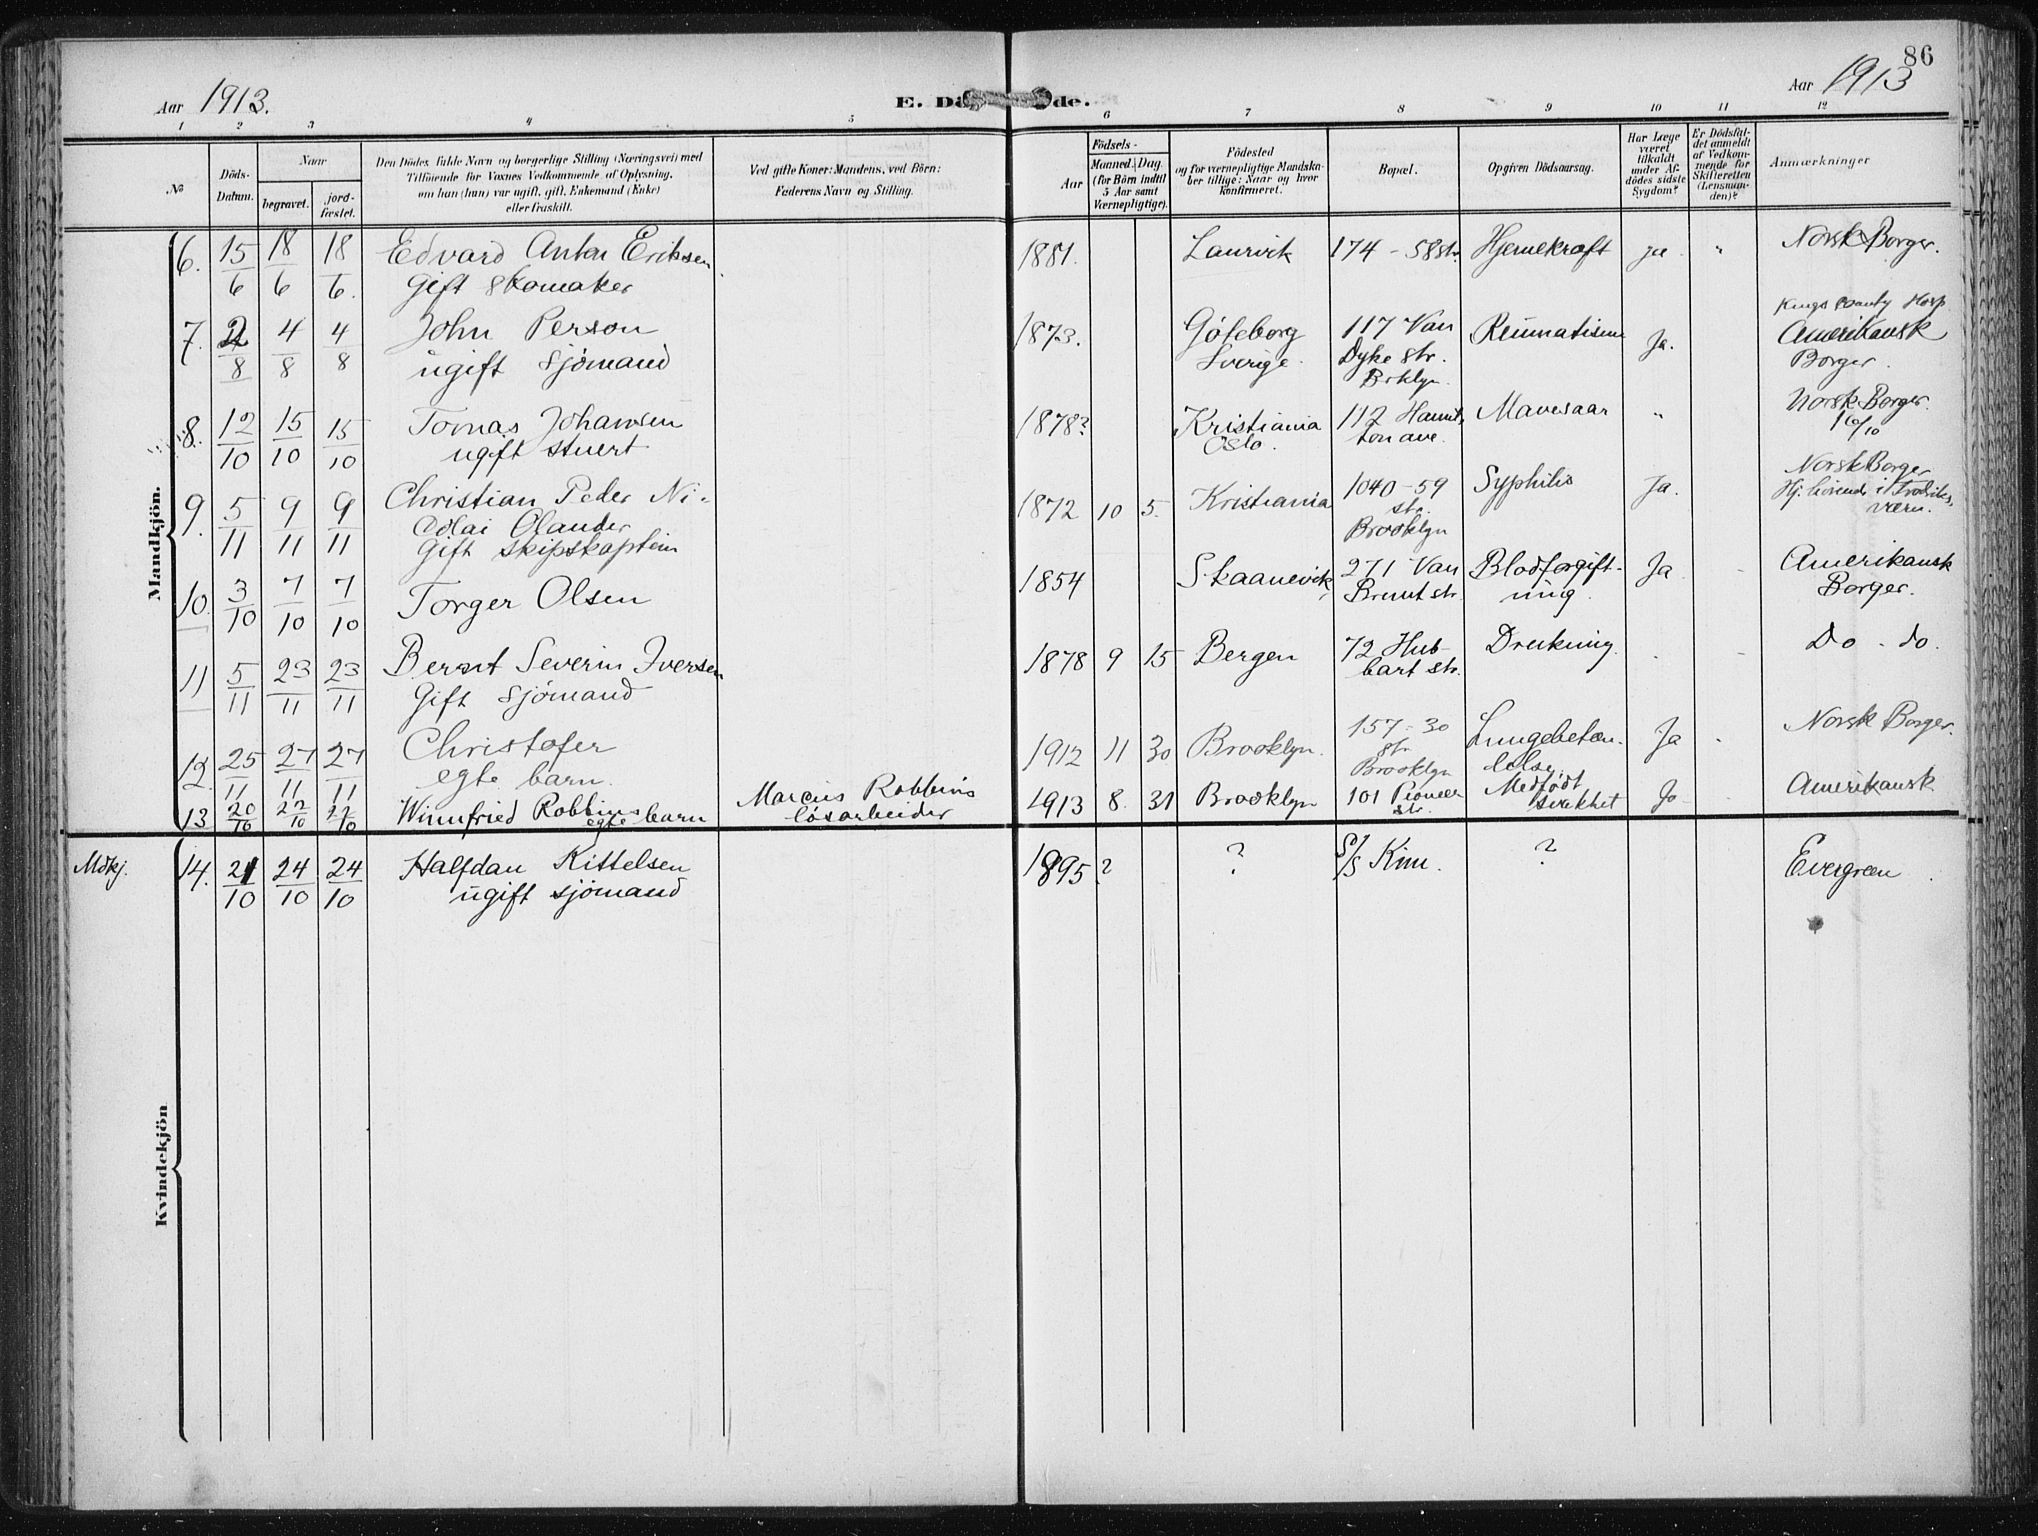 86
Aar 1913.
E. Dö de.
Aar 1913
1 2 3 4 5 6 7 8 9 10 11 12
No
Döds-
Datum.
Naar
begravet.
jord-
fæstet.
Den Dödes fulde Navn og borgerlige Stilling (Næringsvei) med
Tilföiende for Voxnes Vedkommende af Oplysning,
om han (hun) var ugift, gift, Enkemand (Enke)
eller fraskilt.
Ved gifte Koner: Mandens, ved Börn:
Faderens Navn og Stilling.
Födsels-
Aar
Maaned. Dag.
(for Börn indtil
5 Aar samt
Værnepligtige).
Födested
og for værnepligtige Mandska-
ber tillige: Naar og hvor
konfirmeret.
Bopæl.
Opgiven Dödsaarsag.
Har Læge
været
tilkaldt
under Af-
dödes sidste
Sygdom?
Er Dödsfal-
det anmeldt
af Vedkom-
mende for
Skifteretten
(Lensman-
den)?
Anmærkninger
Mandkjön.
6. 15/6 18/6 18/6. Edvard Anton Eriksen 1881. Laurvik 174 - 58 str. Hjernekræft ja " Norsk Borger.
Gift Skomaker
7. 2/8 4/8 4/8 John Person 1873. Göteborg 117 Van Reumatisme Ja. Kings County Hosp
ugift Sjömand Sverige. Dyke str. Amerikansk
Brklyn. Borger.
8. 12/10 15/10 15/10 Tomas Johansen 1878? Kristiania 112 Hamil- Mavesaar " Norsk Borger.
ugift stuert Oslo. ton ave. 16/10
9. 5/11 9/11 9/11 Christian Peder Ni- 1872 10 5. Kristiania 1040 - 59 Syphilis Ja. Norsk Borger
colai Olander str. Hj. hörende i Fredriks-
Gift skipskaptein Brooklyn værn.
10. 3/10 7/10 7/10 Torger Olsen 1854 Skaanevik 271 Van Blodforgift- Ja Amerikansk
Brunt str. ning. Borger.
11 5/11 23/11 23/11 Bernt Severin Iversen 1878 9 15 Bergen 72 Hub- Drukning. Do - do.
Gift Sjömand bart str.
12. 25/11 27/11 27/11 Christofer 1912 11 30 Brooklyn. 157 - 30 Lungebetæn- Ja Norsk Borger.
egte barn. str. delse
Brooklyn
13 20/10 22/10 22/10 Winnfried Robbins Marcus Robbins 1913 8. 31 Brooklyn 101 Pioneer Medfödt Ja Amerikansk
egte barn lösarbeider str. svakhet
Kvindekjön
Mdkj. 14. 21/10 24/10 24/10 Halfdan Kittelsen 1895? ? S/S Kim. ? Evergreen
ugift sjömand